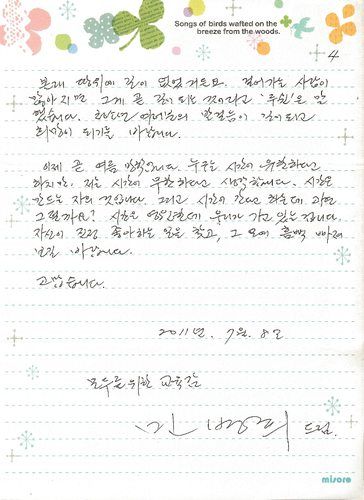 Songs of birds wafted on the
breeze from the woods.
4
본래 땅위에 길이 없었거든요. 걸어가는 사람이
많아지면 그게 곧 길이 되는 것이라고 '루쉰'은 말
했습니다. 여러분의 발걸음이 길이 되고
희망이 되기를 바랍니다.
이제 곧 여름 방학입니다. 누구는 시간이 유한하다고
하지만, 저는 시간이 무한하다고 생각합니다. 시간은
만드는 자의 것입니다. 그리고 시간이 간다고 하는데, 과연
그럴까요? 시간은 영원한데 우리가 가고 있는 겁니다.
자신이 진정 좋아하는 일을 찾고, 그 일에 흠뻑 빠져
보길 바랍니다.
고맙습니다.
2011년. 7월. 8일
모두를 위한 교육감
드림.
misoro